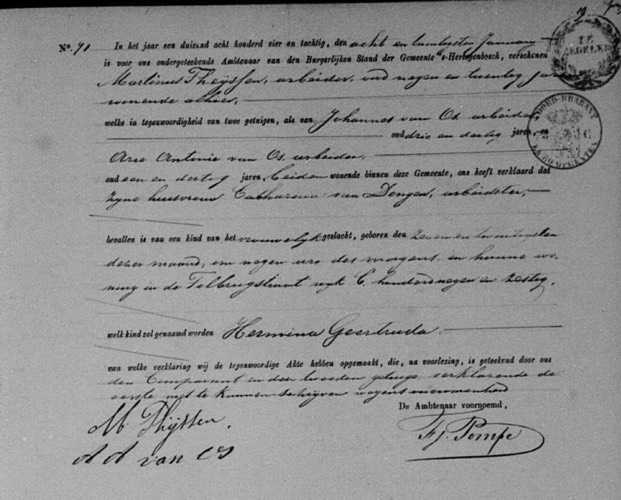 No. 71 In het jaar een duizend acht honderd vier en tachtig, den acht en twintigsten January
is voor ons ondergeteekende Ambtenaar van den Burgerlijken Stand der Gemeente 's-Hertogenbosch, verschenen
Martinus Thijssen, arbeider, oud negen en twintig jaren
wonende alhier,
welke in tegenwoordigheid van twee getuigen, als van Johannes van Os arbeider
oud drie en dertig jaren, en
Arie Antonie van Os arbeider
oud een en dertig jaren, beiden wonende binnen deze Gemeente, ons heeft verklaard dat
zijne huisvrouw Catharina van Dongen, arbeidster,
bevallen is van een kind van het vrouwelijk geslacht, geboren den zeven en twintigsten
dezer maand, om negen ure des morgens, in hunne wo-
ning in de Tolbrugstraat wijk C honderd negen en zestig,
welk kind zal genaamd worden Hermina Geertruda.
van welke verklaring wij de tegenwoordige Akte hebben opgemaakt, die, na voorlezing, is geteekend door ons
den Comparant en den tweeden getuige verklarende de
eerste niet te kunnen schrijven wegens onervarenheid
De Ambtenaar voornoemd,
M. Thijssen.
A A van Os
Pompe
NOORD-BRABANT